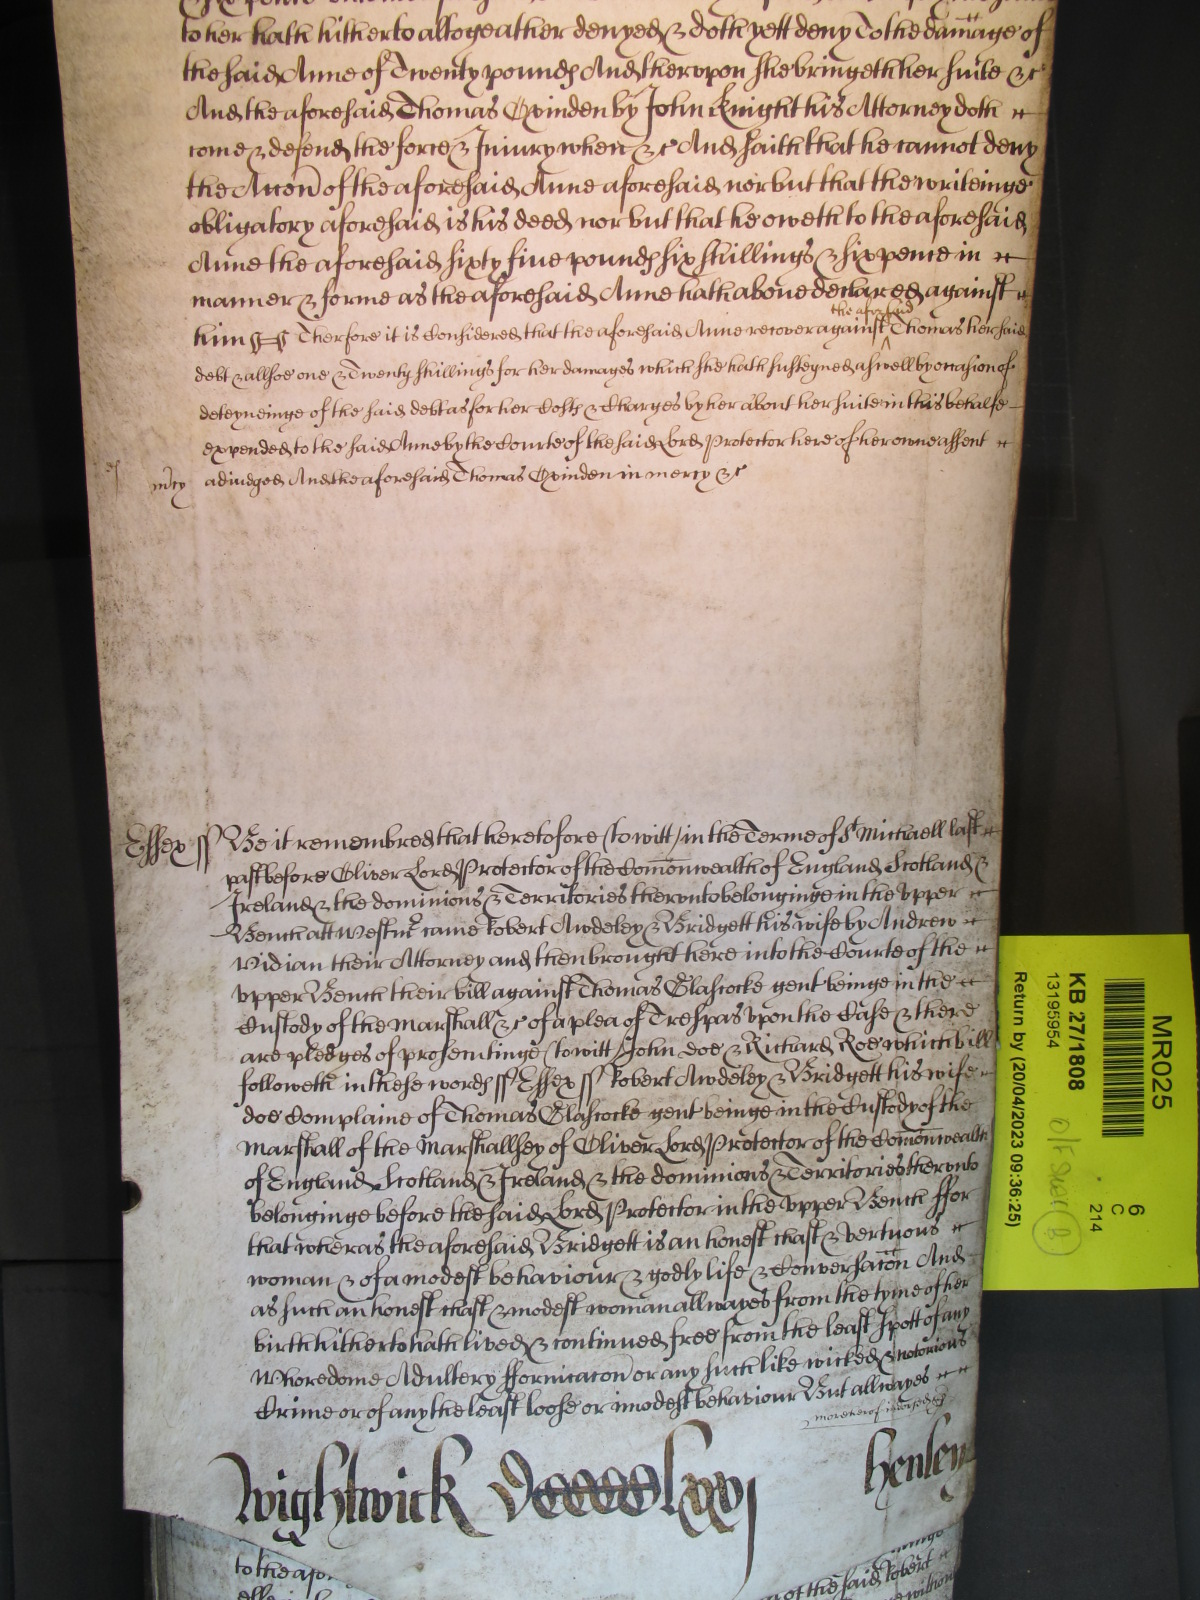 to her hath hitherto altogeather denyed & doth yett deny To the damage of
the said Anne of Twenty pounds And therupon she bringeth her suite &c
And the aforesaid Thomas Quinden by John Knight his Attorney doth
come & defend the force & Iniury when &c And saith that he cannot deny
the Accon of the aforesaid Anne aforesaid nor but that the writeinge
obligatory aforesaid is his deed nor but that he oweth to the aforesaid
Anne the aforesaid sixty five pounds six shillings & six pence in
manner & forme as the aforesaid Anne hath above declared against
him Therfore it is Considered that the aforesaid Anne recover against the aforesaid Thomas her said
debt & allsoe one & Twenty shillings for her damages which she hath susteyned aswell by occasion of
deteyneinge of the said debt as for her Costs & Charges by her about her suite in this behalfe
expended to the said Anne by the Courte of the said Lord Protector here of her owne assent
mcy adiudged And the aforesaid Thomas Quinden in mercy &c
Essex ss Be it remembred that heretofore (to witt) in the Terme of St Michaell last
past before Oliver Lord Protector of the Comonwealth of England Scotland &
Ireland & the dominions & Territories therunto belonginge in the upper
Bench att Westmr came Robert Awdeley & Bridgett his wife by Andrew
Vidian their Attorney and then brought here into the Courte of the
upper Bench their bill against Thomas Glascocke gent beinge in the
Custody of the Marshall &c of a plea of Trespas upon the Case & there
are pledges of prosecutinge (to witt) John Doe & Richard Roe which bill
followeth in these words ss Essex ss Robert Awdeley & Bridgett his wife
doe Complaine of Thomas Glascocke gent beinge in the Custody of the
Marshall of the Marshallsey of Oliver Lord Protector of the Comonwealth
of England Scotland & Ireland & the dominions & Territories therunto
belonginge before the said Lord Protector in the upper Bench ffor
that wheras the aforesaid Bridgett is an honest chast & vertuous
woman & of a modest behaviour & godly life & Conversacon And
as such an honest chast & modest woman allwayes from the tyme of her
birth hitherto hath lived & continued free from the least spott of any
Whoredome Adultery ffornicacon or any such like wicked & notorious
Crime or of any the least loose or imodest behaviour But allwayes
more herof
Wightwick Dcccclxxj Henley
to the
of the said Robert
MR025
6
C
214
KB 27/1808
13195954
Return by (20/04/2023 09:36:25)